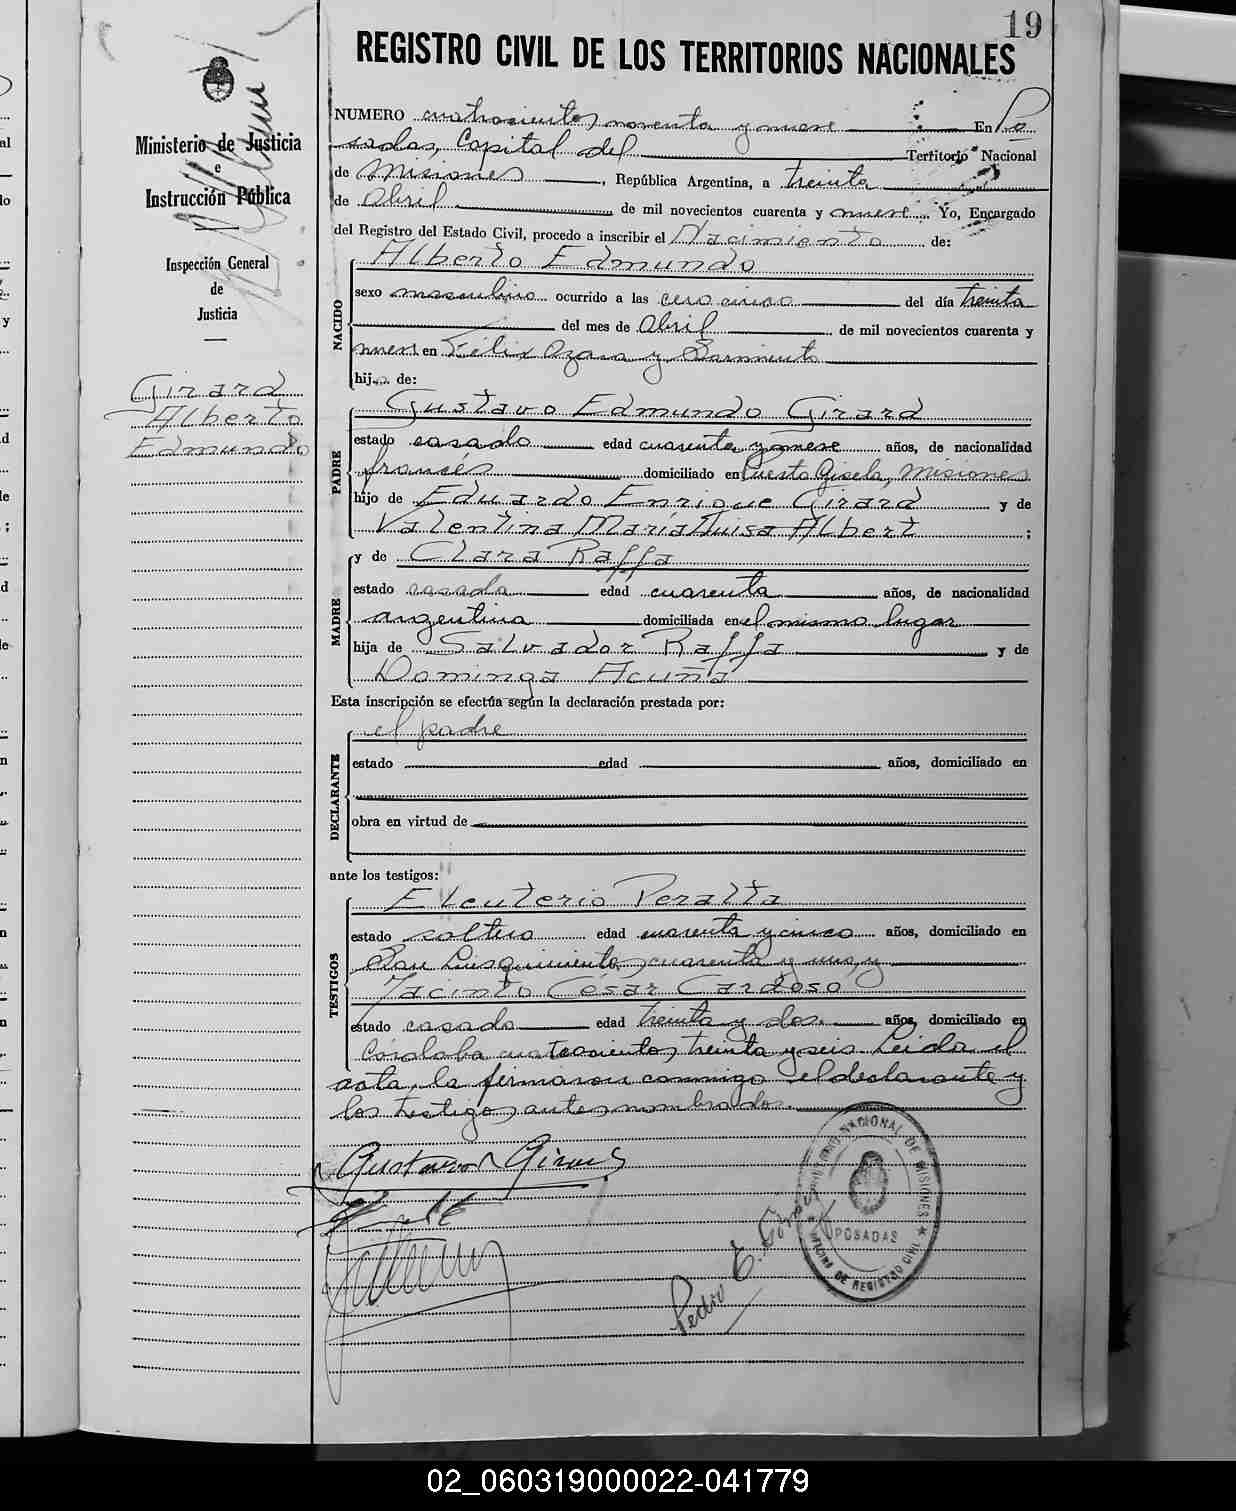 19
REGISTRO CIVIL DE LOS TERRITORIOS NACIONALES
Ministerio de Justicia
e
Instrucción Pública
Inspección General
de
Justicia
Girard
Alberto
Edmundo
NUMERO cuatrocientos noventa y nueve En Po
sadas, Capital del Territorio Nacional
de Misiones, República Argentina, a treinta
de Abril de mil novecientos cuarenta y nueve. Yo, Encargado
del Registro del Estado Civil, procedo a inscribir el Nacimiento de:
NACIDO
Alberto Edmundo
sexo masculino ocurrido a las cero cinco del día treinta
del mes de Abril de mil novecientos cuarenta y
nueve en Félix Azara y Sarmiento
hij de:
PADRE
Gustavo Edmundo Girard
estado casado edad cuarenta y nueve años, de nacionalidad
francés domiciliado en Puerto Gisela, Misiones
hijo de Eduardo Enrique Girard y de
Valentina María Luisa Albert;
MADRE
y de Clara Raffa
estado casada edad cuarenta años, de nacionalidad
argentina domiciliada en el mismo lugar
hija de Salvador Raffa y de
Dominga Acuña
Esta inscripción se efectúa según la declaración prestada por:
DECLARANTE
el padre
estado edad años, domiciliado en
obra en virtud de
ante los testigos:
TESTIGOS
Eleuterio Peralta
estado soltero edad cuarenta y cinco años, domiciliado en
San Luis quinientos cuarenta y uno, y
Jacinto César Cardoso
estado casado edad treinta y dos. años, domiciliado en
Córdoba cuatrocientos treinta y seis Leída el
acta, la firmaron conmigo el declarante y
los testigos antes nombrados.
Gustavo Girard
Pedro E. Gómez
TERRITORIO NACIONAL DE MISIONES
POSADAS
OFICINA DE REGISTRO CIVIL
02_060319000022-041779